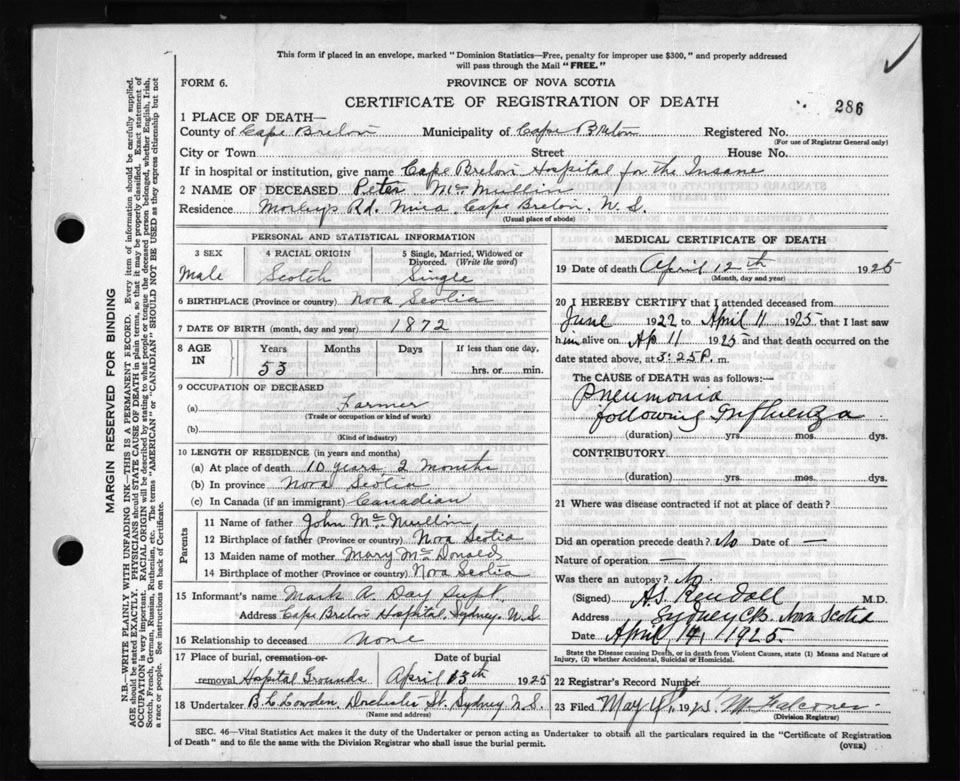 This form if placed in an envelope, marked "Dominion Statistics—Free, penalty for improper use $300," and properly addressed
will pass through the Mail "FREE."
FORM 6.
PROVINCE OF NOVA SCOTIA
CERTIFICATE OF REGISTRATION OF DEATH
286
1 PLACE OF DEATH—
County of Cape Breton Municipality of Cape Breton Registered No.
(For use of Registrar General only)
City or Town Street House No.
If in hospital or institution, give name Cape Breton Hospital for the Insane
2 NAME OF DECEASED Peter McMullin
Residence Morley's Rd. Mira, Cape Breton, N. S.
(Usual place of abode)
PERSONAL AND STATISTICAL INFORMATION
3 SEX 4 RACIAL ORIGIN 5 Single, Married, Widowed or
Divorced. (Write the word)
Male Scotch Single
6 BIRTHPLACE (Province or country) Nova Scotia
7 DATE OF BIRTH (month, day and year) 1872
8 AGE IN Years Months Days If less than one day,
53 hrs. or min.
9 OCCUPATION OF DECEASED
(a) Farmer
(Trade or occupation or kind of work)
(b)
(Kind of industry)
10 LENGTH OF RESIDENCE (in years and months)
(a) At place of death 10 years 2 months
(b) In province Nova Scotia
(c) In Canada (if an immigrant) Canadian
Parents
11 Name of father John McMullin
12 Birthplace of father (Province or country) Nova Scotia
13 Maiden name of mother Mary McDonald
14 Birthplace of mother (Province or country) Nova Scotia
15 Informant's name Mark A. Day Supt.
Address Cape Breton Hospital, Sydney, N. S.
16 Relationship to deceased None
17 Place of burial, cremation or Date of burial
removal Hospital Grounds April 13th 1925
18 Undertaker B. L. Lowden, Dorchester St. Sydney N. S.
(Name and address)
MEDICAL CERTIFICATE OF DEATH
19 Date of death April 12th 1925
(Month, day and year)
20 I HEREBY CERTIFY that I attended deceased from
June 1922 to April 11 1925 that I last saw
him alive on Ap 11 1925 and that death occurred on the
date stated above, at 3:25 P. m.
The CAUSE of DEATH was as follows:—
Pneumonia
following Influenza
(duration) yrs. mos. dys.
CONTRIBUTORY
(duration) yrs. mos. dys.
21 Where was disease contracted if not at place of death?
Did an operation precede death? No Date of —
Nature of operation —
Was there an autopsy? No.
(Signed) A.S. Kendall M.D.
Address Sydney CB. Nova Scotia
Date April 14, 1925
State the Disease causing Death, or in death from Violent Causes, state (1) Means and Nature of
Injury, (2) whether Accidental, Suicidal or Homicidal.
22 Registrar's Record Number
23 Filed May 1925 M Falconer
(Division Registrar)
SEC. 46—Vital Statistics Act makes it the duty of the Undertaker or person acting as Undertaker to obtain all the particulars required in the "Certificate of Registration
of Death" and to file the same with the Division Registrar who shall issue the burial permit.
(OVER)
MARGIN RESERVED FOR BINDING
N.B.—WRITE PLAINLY WITH UNFADING INK—THIS IS A PERMANENT RECORD. Every item of information should be carefully supplied.
AGE should be stated EXACTLY. PHYSICIANS should STATE CAUSE OF DEATH in plain terms, so that it may be properly classified. Exact statement of
OCCUPATION is very important. RACIAL ORIGIN will be described by stating to what people or tongue the deceased person belonged, whether English, Irish,
Scotch, French, German, Russian, Ruthenian, etc. The terms "AMERICAN" or "CANADIAN" SHOULD NOT BE USED as they express citizenship but not
a race or people. See instructions on back of Certificate.